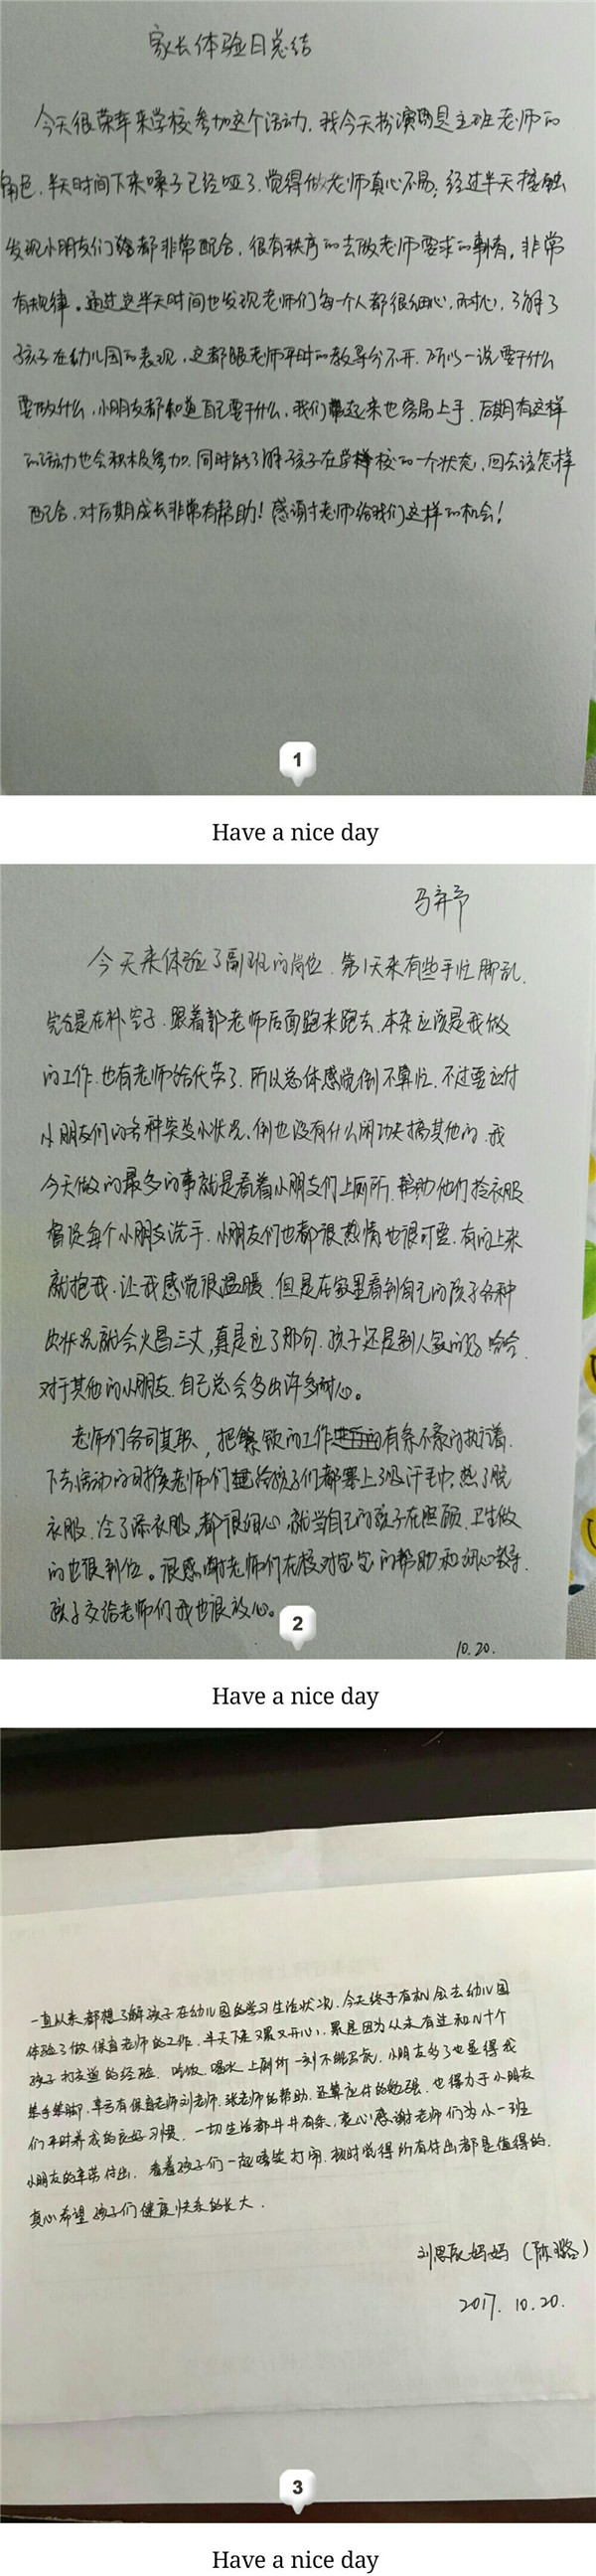 家长体验日总结
今天很荣幸来学校参加这个活动,我今天扮演的是主班老师的
角色,半天时间下来嗓子已经哑了,觉得做老师真心不易,经过半天接触
发现小朋友们都非常配合,很有秩序的去做老师要求的事情,非常
有规律。通过这半天时间也发现老师们每个人都很细心,耐心,了解了
孩子在幼儿园的表现,这都跟老师平时的教导分不开,所以一说要干什么
要做什么,小朋友都知道自己要干什么,我们带起来也容易上手,后期有这样
的活动也会积极参加,同时能了解孩子在学校的一个状态,回去该怎样
配合,对后期成长非常有帮助!感谢老师给我们这样的机会!
1
Have a nice day
马弈予
今天来体验了副班的岗位,第1天来有些手忙脚乱,
完全是在补空子,跟着郭老师后面跑来跑去,本来应该是我做
的工作,也有老师给代劳了,所以总体感觉倒不算忙,不过要应付
小朋友们的各种突发小状况,倒也没有什么闲功夫搞其他的,我
今天做的最多的事就是看着小朋友们上厕所,帮助他们拎衣服
督促每个小朋友洗手,小朋友们也都很热情也很可爱,有的上来
就抱我,让我感觉很温暖,但是在家里看到自己的孩子各种
状况就会火冒三丈,真是应了那句,孩子还是别人家的好 哈哈,
对于其他的小朋友,自己总会多出许多耐心。
老师们各司其职,把繁琐的工作有条不紊的执行着,
下去活动的时候老师们给孩子们都塞上了吸汗毛巾,热了脱
衣服,冷了添衣服,都很细心,就当自己的孩子在照顾,卫生做
的也很到位。很感谢老师们在校对宝宝的帮助和细心教导,
孩子交给老师们我也很放心。
2
10.20.
Have a nice day
一直以来都想了解孩子在幼儿园的学习生活状况,今天终于有机会去幼儿园
体验了做保育老师的工作,半天下来又累又开心,累是因为从未有过和几十个
孩子打交道的经验,吃饭、喝水、上厕所一刻不能,小朋友多了也显得我
笨手笨脚,幸亏有保育老师刘老师、张老师的帮助,还算应付的勉强,也得力于小朋友
们平时养成的良好习惯,一切生活都井井有条,衷心感谢老师们为小一班
小朋友的辛苦付出,看着孩子们一起嘻笑打闹,顿时觉得所有付出都是值得的,
真心希望孩子们健康快乐的长大.
刘思辰妈妈(陈璐)
2017.10.20.
3
Have a nice day